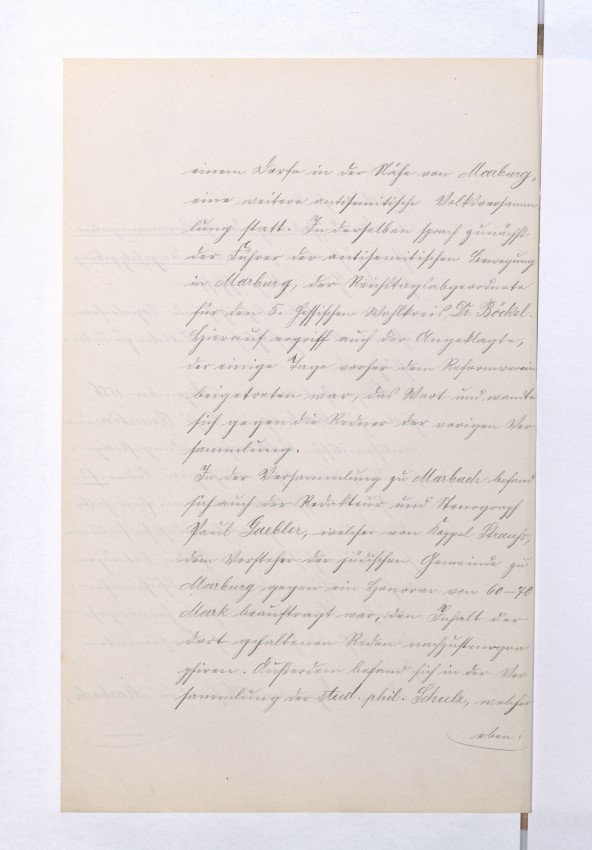 einem Dorfe in der Nähe von Marburg,
eine weitere antisemitische Volksversamm
lung statt. In derselben sprach zunächst
der Führer der antisemitischen Bewegung
in Marburg, der Reichstagsabgeordnete
für den 5. Hessischen Wahlkreis, Dr. Böckel.
Hierauf ergriff auch der Angeklagte,
der einige Tage vorher dem Reformverein
beigetreten war, das Wort und wandte
sich gegen die Redner der vorigen Ver
sammlung.
In der Versammlung zu Marbach befand
sich auch der Redakteur und Stenograph
Paul Gaebler, welcher von Koppel Strauß,
dem Vorsteher der jüdischen Gemeinde zu
Marburg gegen ein Honorar von 60-70
Mark beauftragt war, den Inhalt der
dort gehaltenen Reden nachzustenogra
phiren. Außerdem befand sich in der Ver
sammlung der stud. phil. Schulz, welcher
eben.